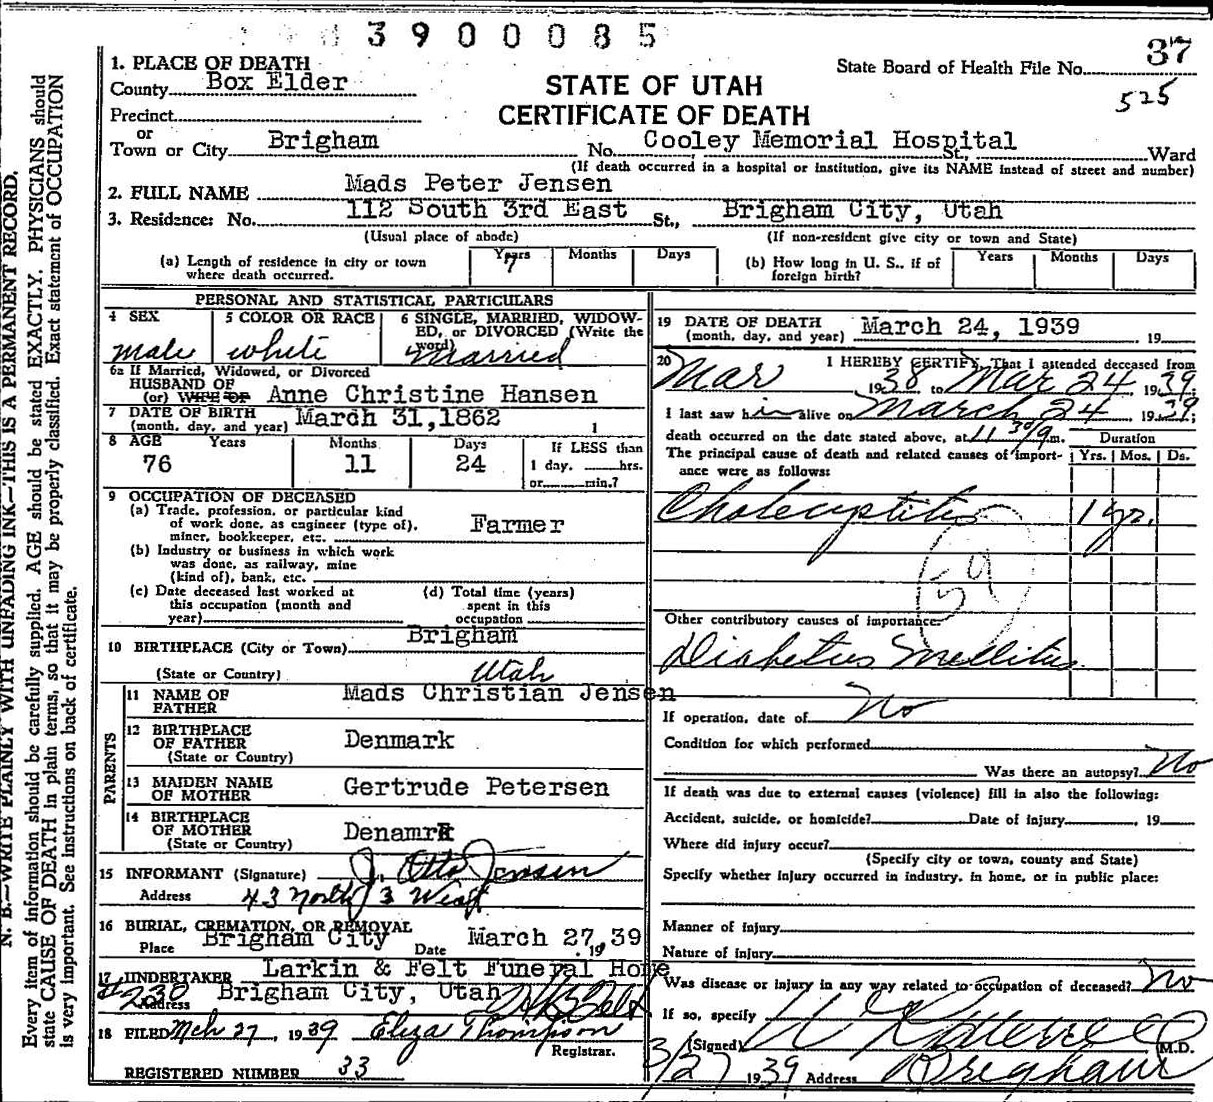 3900085
37
1. PLACE OF DEATH
State Board of Health File No.
525
County Box Elder
STATE OF UTAH
CERTIFICATE OF DEATH
Precinct
or
Town or City Brigham No. Cooley Memorial Hospital St., Ward
(If death occurred in a hospital or institution, give its NAME instead of street and number)
2. FULL NAME Mads Peter Jensen
3. Residence: No. 112 South 3rd East St., Brigham City, Utah
(Usual place of abode) (If non-resident give city or town and State)
(a) Length of residence in city or town where death occurred. Years 7 Months Days
(b) How long in U. S., if of foreign birth? Years Months Days
PERSONAL AND STATISTICAL PARTICULARS
4 SEX
male
5 COLOR OR RACE
white
6 SINGLE, MARRIED, WIDOW-
ED, or DIVORCED (Write the
word)
Married
6a If Married, Widowed, or Divorced
HUSBAND OF
(or) WIFE OF Anne Christine Hansen
7 DATE OF BIRTH
(month, day, and year) March 31, 1862 1
8 AGE Years Months Days If LESS than
76 11 24 1 day, hrs.
or min.?
9 OCCUPATION OF DECEASED
(a) Trade, profession, or particular kind
of work done, as engineer (type of),
miner, bookkeeper, etc. Farmer
(b) Industry or business in which work
was done, as railway, mine
(kind of), bank, etc.
(c) Date deceased last worked at
this occupation (month and
year)
(d) Total time (years)
spent in this
occupation
10 BIRTHPLACE (City or Town) Brigham
(State or Country) Utah
PARENTS
11 NAME OF
FATHER Mads Christian Jensen
12 BIRTHPLACE
OF FATHER Denmark
(State or Country)
13 MAIDEN NAME
OF MOTHER Gertrude Petersen
14 BIRTHPLACE
OF MOTHER Denamrk
(State or Country)
15 INFORMANT (Signature) J. Otto Jensen
Address 43 North 3 West
16 BURIAL, CREMATION, OR REMOVAL
Place Brigham City Date March 27, 19 39
17 UNDERTAKER Larkin & Felt Funeral Home
$2.30
Address Brigham City, Utah
18 FILED Mch 27, 1939 Eliza Thompson
Registrar.
REGISTERED NUMBER 33
19 DATE OF DEATH
(month, day, and year) March 24, 1939 19
20 I HEREBY CERTIFY, That I attended deceased from
Mar 1938 to Mar 24 1939;
I last saw him alive on March 24 1939;
death occurred on the date stated above, at 11 30 m.
The principal cause of death and related causes of import-
ance were as follows:
Duration
Yrs. Mos. Ds.
Cholecystitis 1 yr.
59
Other contributory causes of importance:
Diabetus Mellitus
If operation, date of No
Condition for which performed
Was there an autopsy? No
If death was due to external causes (violence) fill in also the following:
Accident, suicide, or homicide? Date of injury , 19
Where did injury occur?
(Specify city or town, county and State)
Specify whether injury occurred in industry, in home, or in public place:
Manner of Injury
Nature of Injury
Was disease or injury in any way related to occupation of deceased? No
If so, specify
(Signed) M.D.
3/27 1939 Address Brigham
N. B.—WRITE PLAINLY WITH UNFADING INK—THIS IS A PERMANENT RECORD.
Every item of information should be carefully supplied. AGE should be stated EXACTLY. PHYSICIANS should
state CAUSE OF DEATH in plain terms, so that it may be properly classified. Exact statement of OCCUPATION
is very important. See instructions on back of certificate.